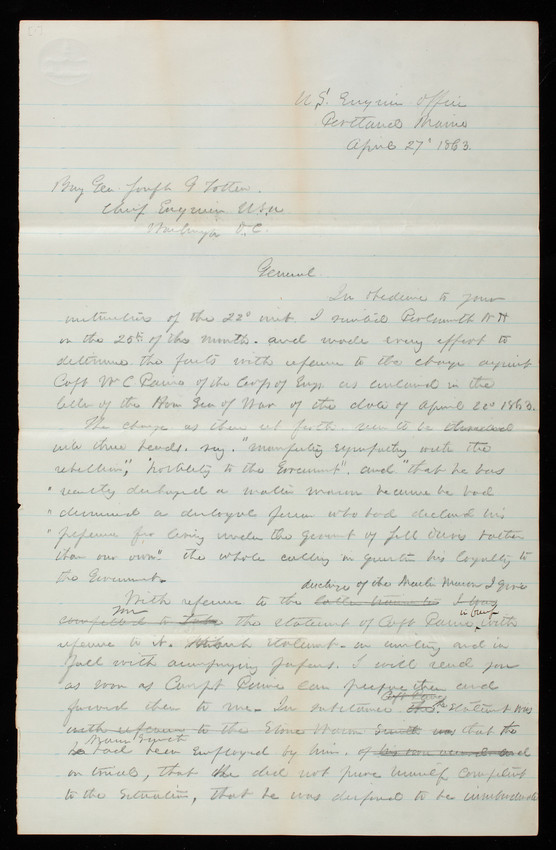 U.S. Engineer Office
Portland Maine
April 27' 1863.
Brig Gen. Joseph G Totten.
Chief Engineer U.S.A
Washington D.C.
General
In obedience to your
instruction of the 22d inst. I Portsmouth N H
on the 25th of the month. and made every effort to
determine the facts with reference to the charge against
Capt W C Paine of the Corps of Engs. as contained in the
letter of the of War of the date of April 20' 1863.
The charge as then set forth. seem to be
into three heads. say. "manifesting sympathy with the
rebellion", "hostility to the Government". and "that he has
" recently discharged a master mason because he had
" denounced a disloyal person who had declared his
" preference for living under the govmt of Jeff Davis rather
than our own". The whole calling in question his loyalty to
the Government.
discharge of the Master Mason I give
With reference to the
you in brief
compelled to take the statement of Capt Paine, with
reference to it. statement. in writing and in
full with accompanying papers. I will send you
as soon as Capt Paine can prepare them and
Capt Paine's
forward them to me. In substance the statement was
with reference to the Stone Mason Smith was that the
Mason Smith
he had been employed by him.
on trial, that he did not prove himself competent
to the situation, that he was disposed to be insubordinate